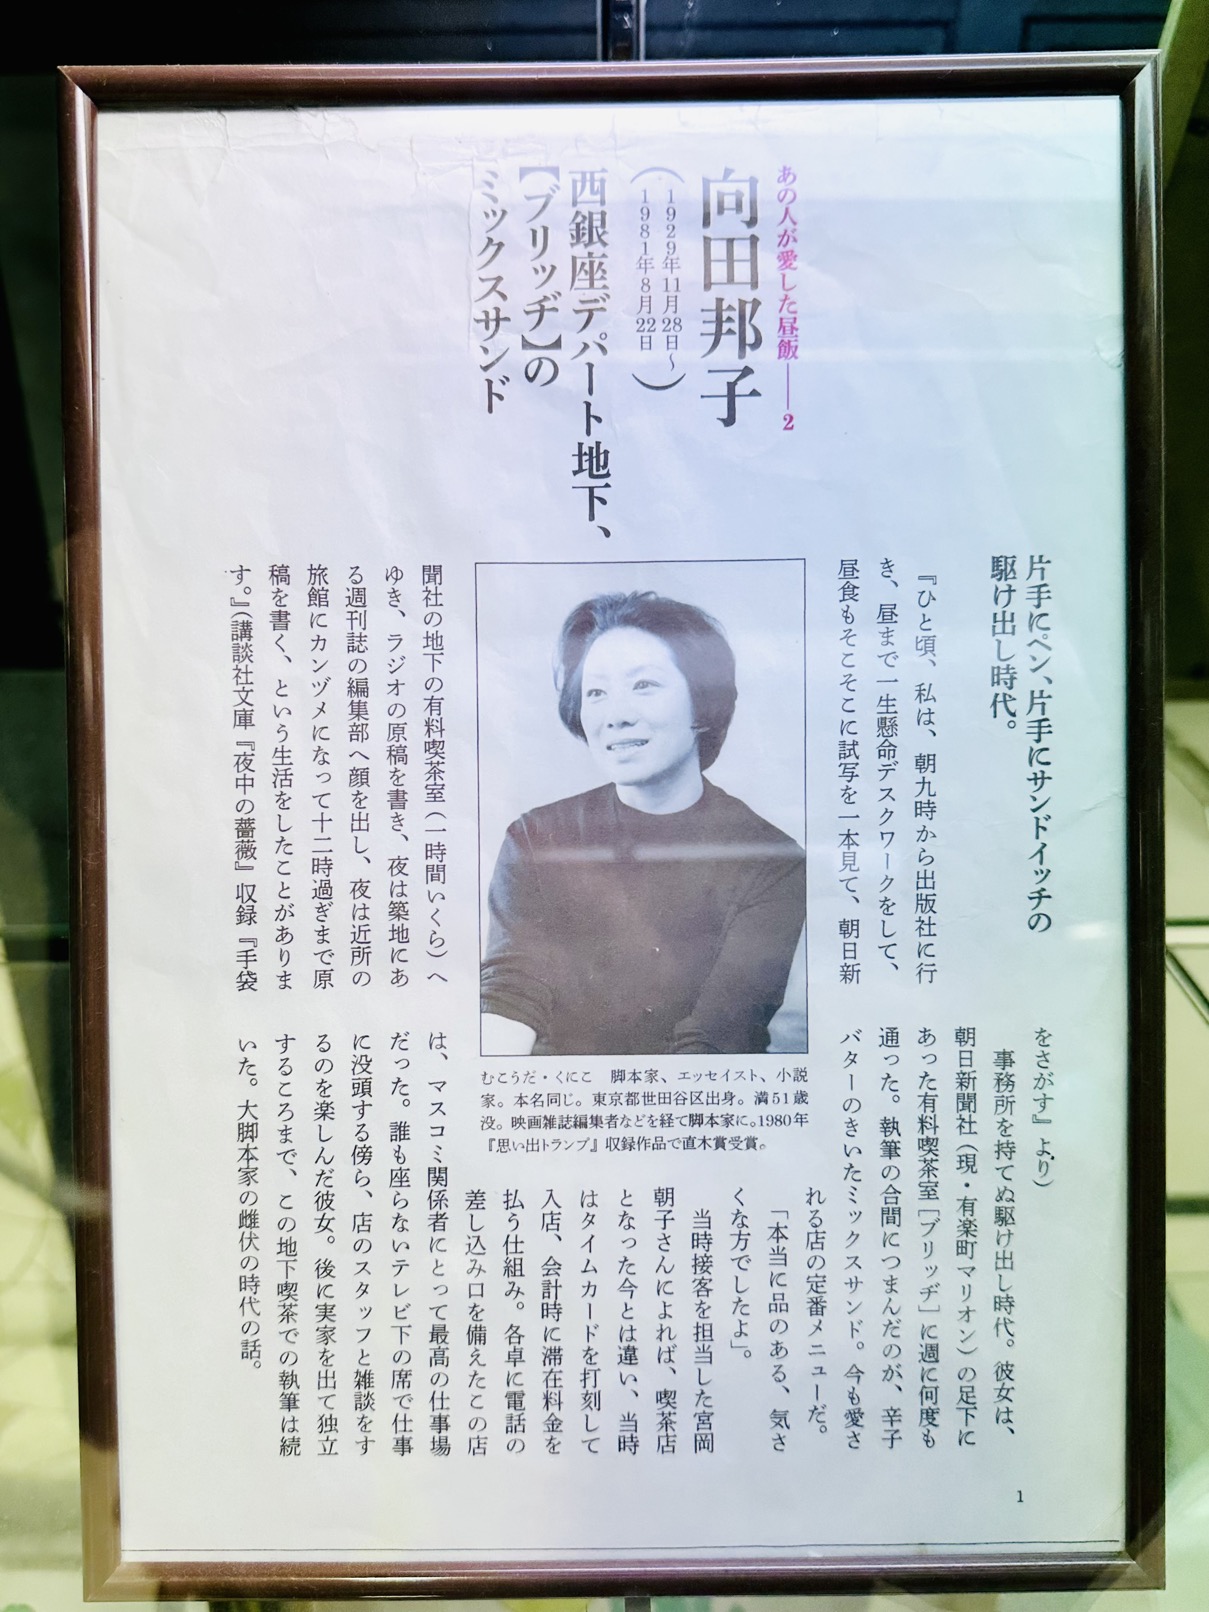 あの人が愛した昼飯——2
向田邦子
(1929年11月28日〜
1981年8月22日)
西銀座デパート地下、
【ブリッヂ】の
ミックスサンド
片手にペン、片手にサンドイッチの
駆け出し時代。
『ひと頃、私は、朝九時から出版社に行
き、昼まで一生懸命デスクワークをして、
昼食もそこそこに試写を一本見て、朝日新
聞社の地下の有料喫茶室(一時間いくら)へ
ゆき、ラジオの原稿を書き、夜は築地にあ
る週刊誌の編集部へ顔を出し、夜は近所の
旅館にカンヅメになって十二時過ぎまで原
稿を書く、という生活をしたことがありま
す。』(講談社文庫『夜中の薔薇』収録『手袋
をさがす』より)
事務所を持てぬ駆け出し時代。彼女は、
朝日新聞社(現・有楽町マリオン)の足下に
あった有料喫茶室[ブリッヂ]に週に何度も
通った。執筆の合間につまんだのが、辛子
バターのきいたミックスサンド。今も愛さ
れる店の定番メニューだ。
「本当に品のある、気さ
くな方でしたよ」。
当時接客を担当した宮岡
朝子さんによれば、喫茶店
となった今とは違い、当時
はタイムカードを打刻して
入店、会計時に滞在料金を
払う仕組み。各卓に電話の
差し込み口を備えたこの店
は、マスコミ関係者にとって最高の仕事場
だった。誰も座らないテレビ下の席で仕事
に没頭する傍ら、店のスタッフと雑談をす
るのを楽しんだ彼女。後に実家を出て独立
するころまで、この地下喫茶での執筆は続
いた。大脚本家の雌伏の時代の話。
むこうだ・くにこ 脚本家、エッセイスト、小説
家。本名同じ。東京都世田谷区出身。満51歳
没。映画雑誌編集者などを経て脚本家に。1980年
『思い出トランプ』収録作品で直木賞受賞。
1